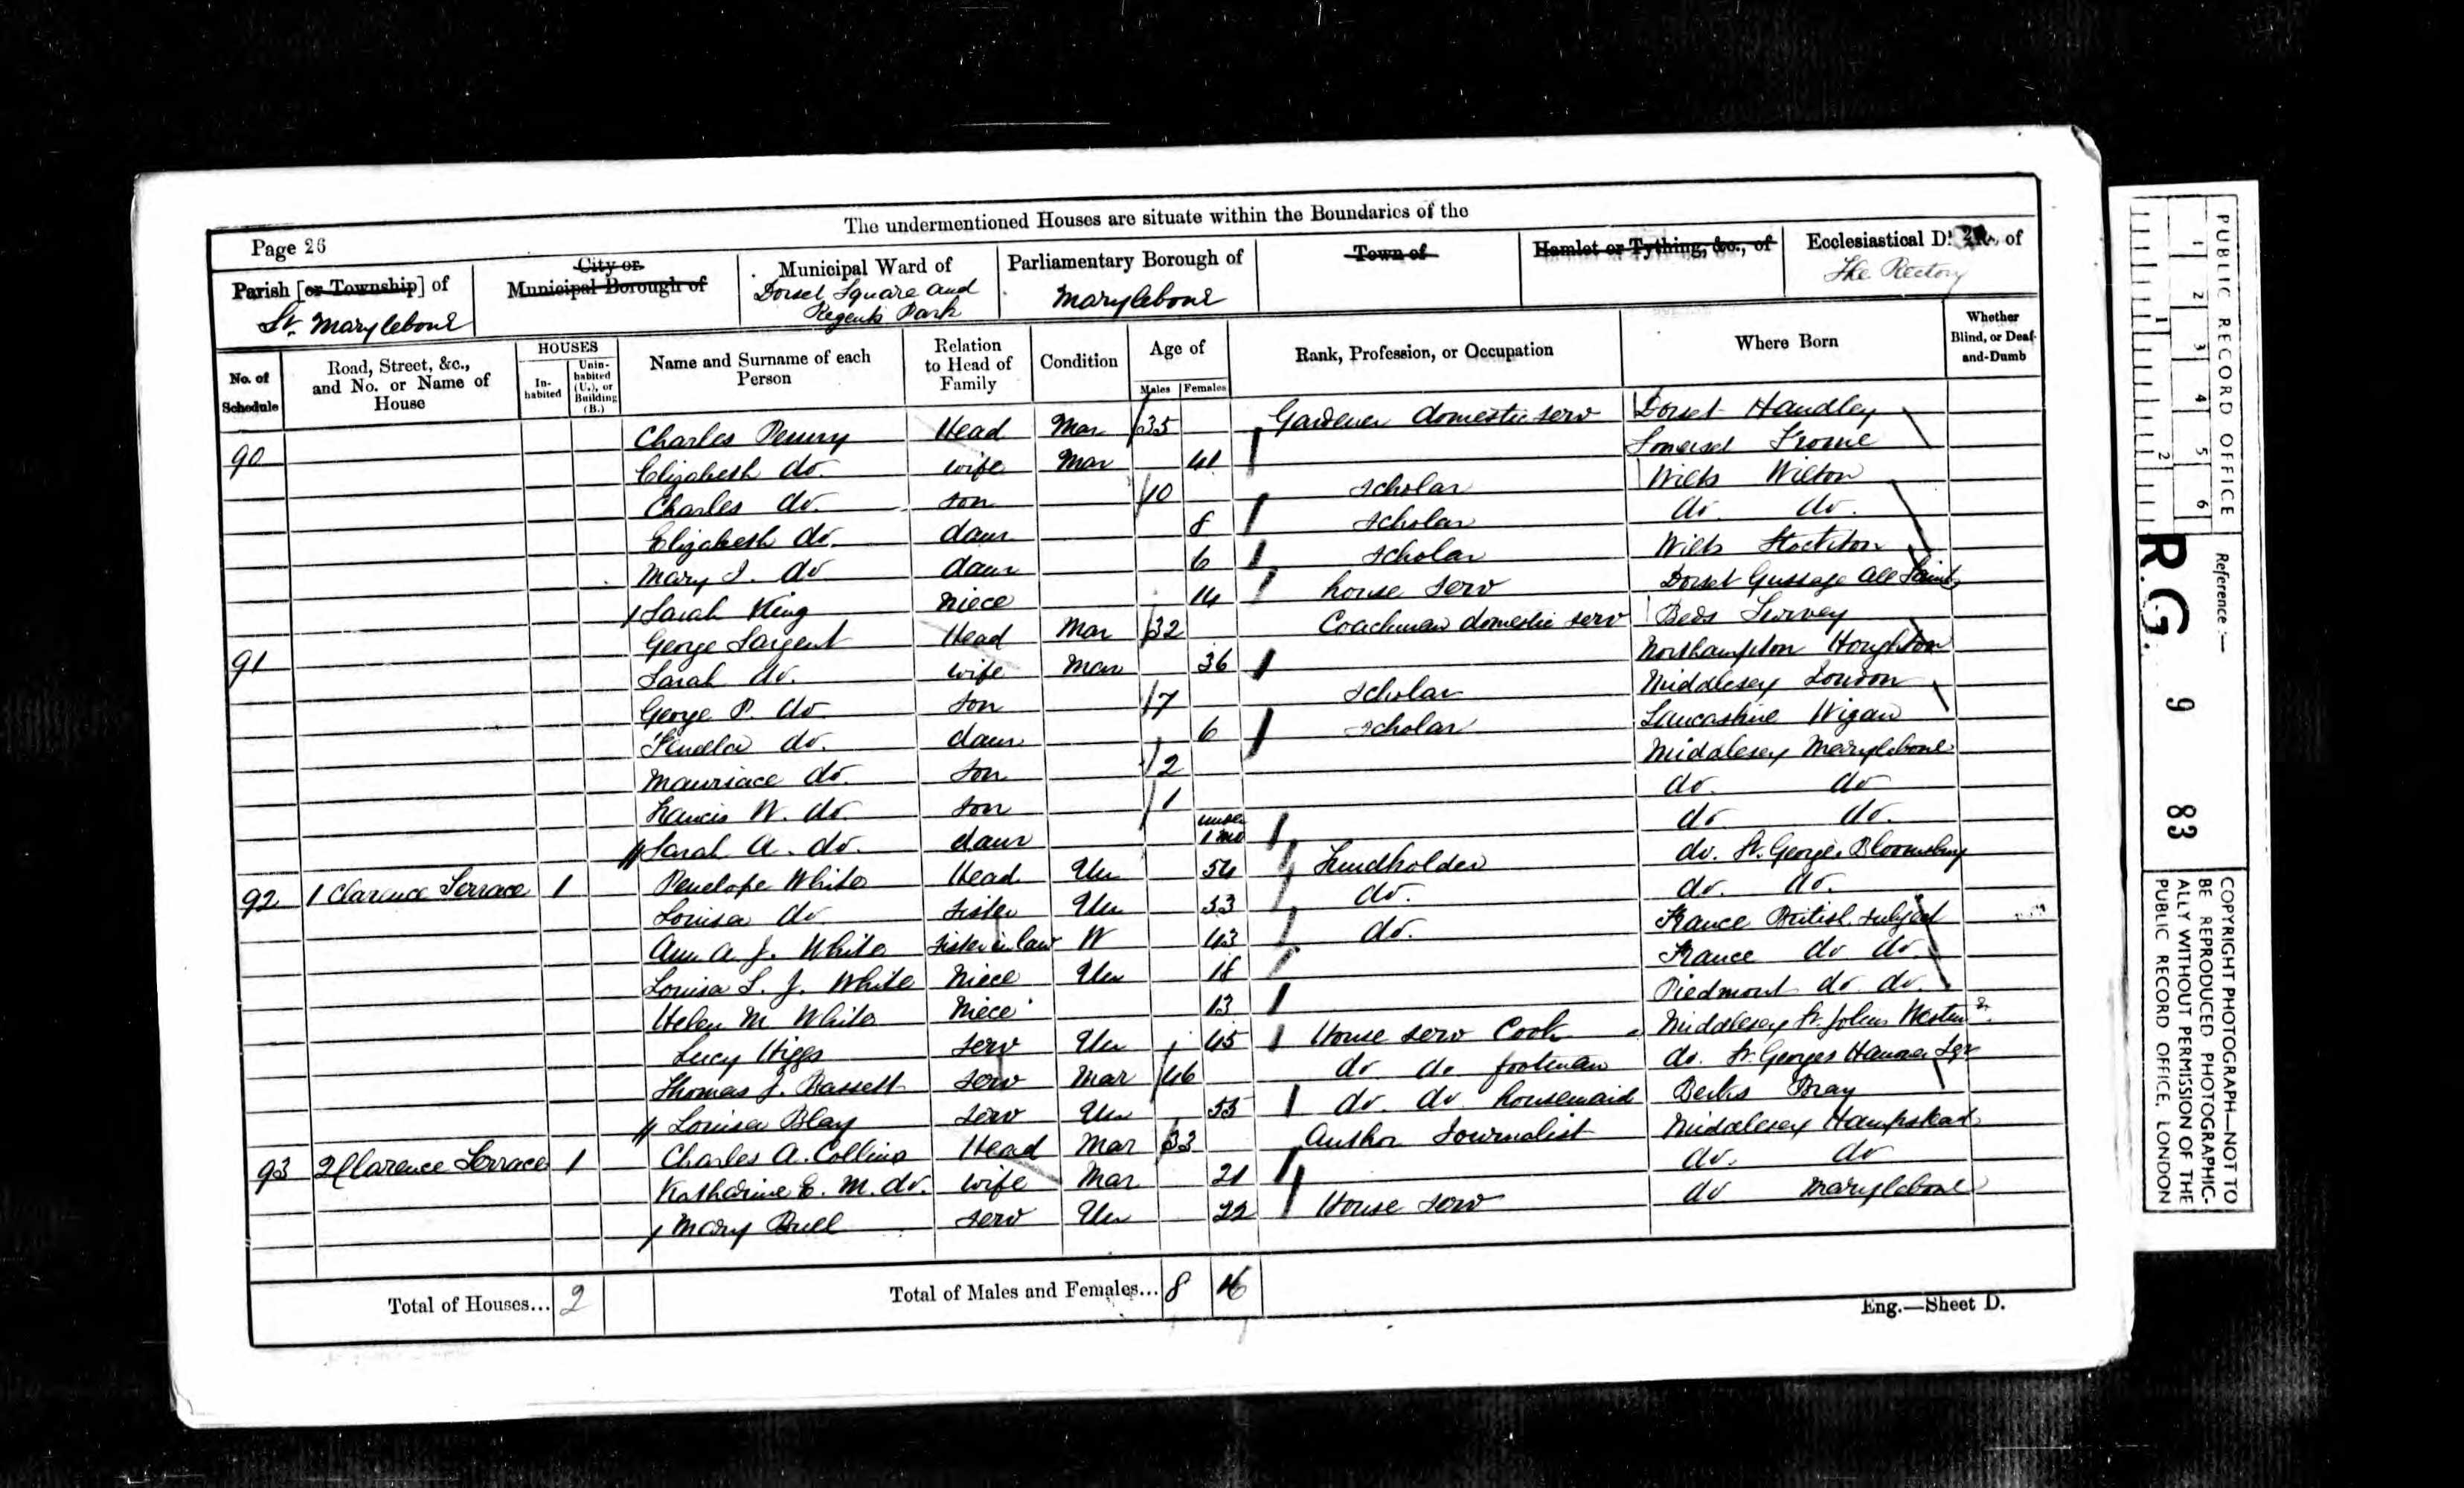 The undermentioned Houses are situate within the Boundaries of the
Page 26
Parish [or Township] of
St. Marylebone
City or
Municipal Borough of
Municipal Ward of
Dorset Square and
Regents Park
Parliamentary Borough of
Marylebone
Town of
Hamlet or Tything, &c., of
Ecclesiastical D. of
The Rectory
No. of Schedule
Road, Street, &c., and No. or Name of House
HOUSES
Inhabited
Uninhabited (U.), or Building (B.)
Name and Surname of each Person
Relation to Head of Family
Condition
Age of
Males Females
Rank, Profession, or Occupation
Where Born
Whether Blind, or Deaf-and-Dumb
90 Charles Penny Head Mar 35 Gardener domestic serv Dorset Handley
Elizabeth do. wife Mar 41 Somerset Frome
Charles do. son 10 scholar Wilts Wilton
Elizabeth do. daur 8 scholar do. do.
Mary J. do daur 6 scholar Wilts Stockton
Sarah King Niece 14 house serv Dorset Gussage All Saints
91 George Sargent Head Mar 32 Coachman domestic serv Beds Turvey
Sarah do. wife Mar 36 Northampton Houghton
George P. do. son 7 scholar Middlesex London
do. daur 6 scholar Lancashire Wigan
Mauriace do. son 2 Middlesex Marylebone
Francis W. do. son 1 do. do
Sarah A. do. daur under 1 mo do. do.
92 1 Clarence Terrace 1 Penelope White Head Un 54 Fundholder do. St. George's Bloomsbury
Louisa do sister Un 53 do. do. do.
Ann A. J. White sister in law W 43 do. France British subject
Louisa S. J. White Niece Un 18 France do do.
Helen M. White Niece 13 Piedmont do do.
Lucy Higgs serv Un 45 House serv Cook Middlesex St. Johns Westmr.
Thomas J. Bassett serv Mar 46 do do footman do. St. Georges Hanover Sqr
Louisa Blay serv Un 55 do. do housemaid Berks Bray
93 2 Clarence Terrace 1 Charles A. Collins Head Mar 33 Author Journalist Middlesex Hampstead
Katharine E. M. do. wife Mar 21 do. do
Mary Bull serv Un 22 House serv do Marylebone
Total of Houses... 2
Total of Males and Females... 8 16
Eng.—Sheet D.
PUBLIC RECORD OFFICE
1 2 3 4 5 6
1 2
Reference :—
R.G. 9 83
COPYRIGHT PHOTOGRAPH—NOT TO
BE REPRODUCED PHOTOGRAPHIC-
ALLY WITHOUT PERMISSION OF THE
PUBLIC RECORD OFFICE, LONDON